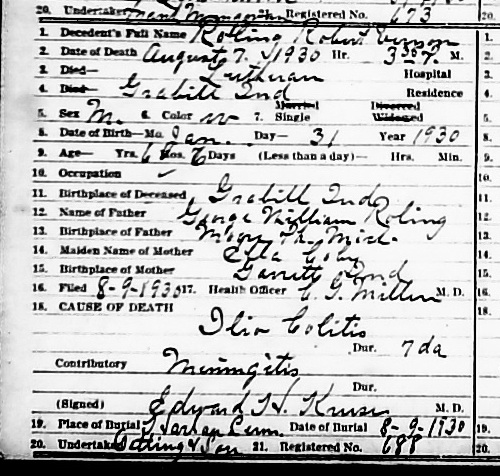 20. Undertaker Frank Registered No. 673 20.
1. Decedent's Full Name Rolling Robert Vernon 1.
2. Date of Death August 7. 1930 Hr. 3 P. M. 2.
3. Died— Lutheran Hospital 3.
4. Died— Grabill Ind Residence 4.
5. Sex M. 6. Color w 7. Married Single Divorced Widowed 5.
8. Date of Birth—Mo. Jan. Day— 31 Year 1930 8.
9. Age— Yrs. 6 Mos. 6 Days (Less than a day)— Hrs. Min. 9.
10. Occupation ✓ 10.
11. Birthplace of Deceased Grabill Ind 11.
12. Name of Father George William Roling 12.
13. Birthplace of Father Mich. 13.
14. Maiden Name of Mother Ella 14.
15. Birthplace of Mother Garrett Ind 15.
16. Filed 8-9-1930 17. Health Officer C. G. Miller M. D. 16.
18. CAUSE OF DEATH 18.
Ilio Colitis
Dur. 7 da
Contributory Meningitis
Dur.
(Signed) Edward H. Kruse M. D.
19. Place of Burial Harlan Cem. Date of Burial 8-9-1930 19.
20. Undertaker & Son 21. Registered No. 688 20.